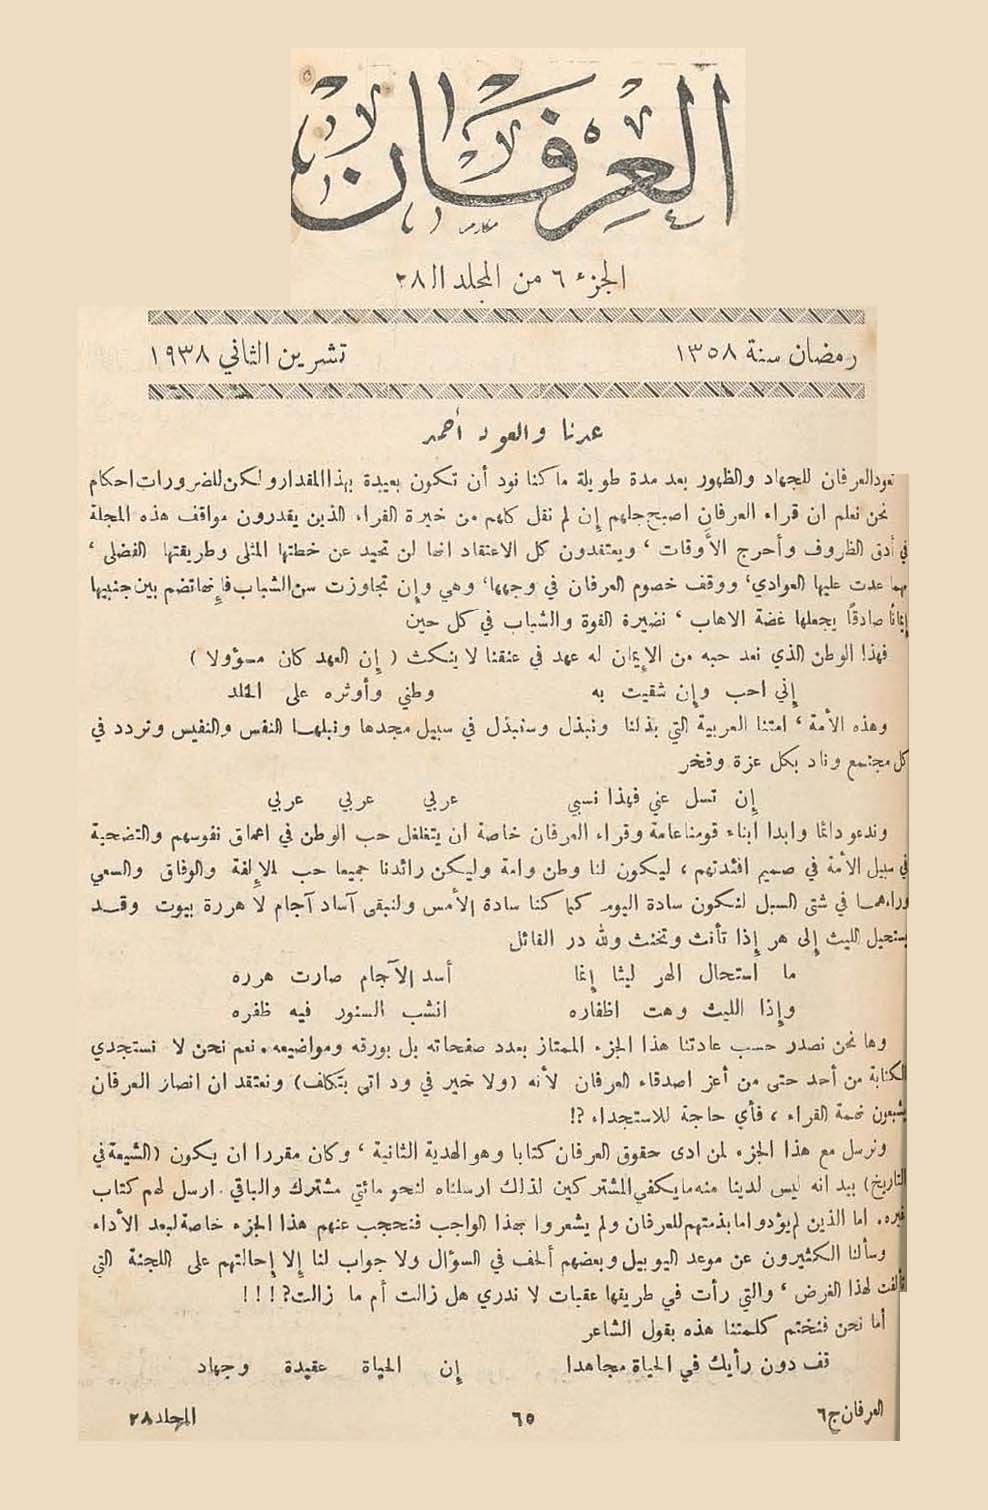 العرفان
مكارم
الجزء ٦ من المجلد الـ ٢٨
رمضان سنة ١٣٥٨
تشرين الثاني ١٩٣٨
عدنا والعود أحمد
نعود العرفان للجهاد والظهور بعد مدة طويلة ما كنا نود أن تكون بعيدة بهذا المقدار ولكن للضرورات احكام
نحن نعلم ان قراء العرفان اصبح جلهم إن لم نقل كلهم من خيرة القراء الذين يقدرون مواقف هذه المجلة
في أدق الظروف وأحرج الأوقات ، ويعتقدون كل الاعتقاد انها لن تحيد عن خطتها المثلى وطريقتها الفضلى ،
مهما عدت عليها العوادي ، ووقف خصوم العرفان في وجهها ، وهي وإن تجاوزت سن الشباب فإنها تضم بين جنبيها
إيمانًا صادقًا يجعلها غضة الاهاب ، نضيرة القوة والشباب في كل حين
فهذا الوطن الذي نعد حبه من الإيمان له عهد في عنقنا لا ينكث ( إن العهد كان مسؤولا )
إني احب وإن شقيت به وطني وأوثره على الخلد
وهذه الأمة ، امتنا العربية التي بذلنا ونبذل وسنبذل في سبيل مجدها ونبلها النفس والنفيس ونردد في
كل مجتمع وناد بكل عزة وفخر
إن تسل عني فهذا نسبي عربي عربي عربي
وندعو دائما وابدا ابناء قومنا عامة وقراء العرفان خاصة ان يتغلغل حب الوطن في اعماق نفوسهم والتضحية
في سبيل الأمة في صميم افئدتهم ، ليكون لنا وطن وامة وليكن رائدنا جميعا حب الإلفة والوفاق والسعي
وراءهما في شتى السبل لنكون سادة اليوم كما كنا سادة الأمس ولنبقى آساد آجام لا هررة بيوت وقد
يستحيل الليث إلى هر إذا تأنث وتخنث ولله در القائل
ما استحال الهر ليثا إنما أسد الآجام صارت هرره
وإذا الليث وهت اظفاره انشب السنور فيه ظفره
وها نحن نصدر حسب عادتنا هذا الجزء الممتاز بعدد صفحاته بل بورقه ومواضيعه . نعم نحن لا نستجدي
الكتابة من أحد حتى من أعز اصدقاء العرفان لأنه (ولا خير في ود اتى بتكلف) ونعتقد ان انصار العرفان
يشبعون نهمة القراء ، فأي حاجة للاستجداء ؟!
ونرسل مع هذا الجزء لمن ادى حقوق العرفان كتابا وهو الهدية الثانية ، وكان مقررا ان يكون (الشيعة في
التاريخ) بيد انه ليس لدينا منه ما يكفي المشتركين لذلك ارسلناه لنحو مائتي مشترك والباقي ارسل لهم كتاب
غيره . اما الذين لم يؤدوا ما بذمتهم للعرفان ولم يشعروا بهذا الواجب فنحجب عنهم هذا الجزء خاصة لبعد الأداء
وسألنا الكثيرون عن موعد اليوبيل وبعضهم ألحف في السؤال ولا جواب لنا إلا إحالتهم على اللجنة التي
تألفت لهذا الغرض ، والتي رأت في طريقها عقبات لا ندري هل زالت أم ما زالت ؟!!!
أما نحن فنختم كلمتنا هذه بقول الشاعر
قف دون رأيك في الحياة مجاهدا إن الحياة عقيدة وجهاد
العرفان ج ٦
٦٥
المجلد ٢٨